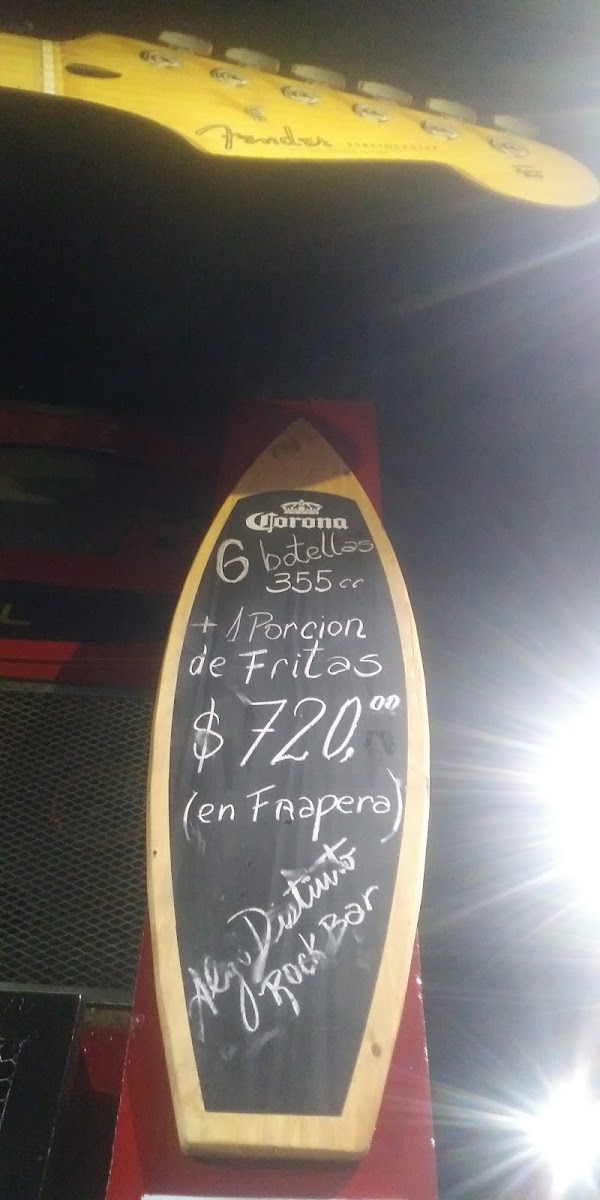 Fender
STRATOCASTER
Corona
6 botellas
355 cc
+ 1 Porcion
de Fritas
$ 720,00
(en FRapera)
Algo Distinto
Rock Bar